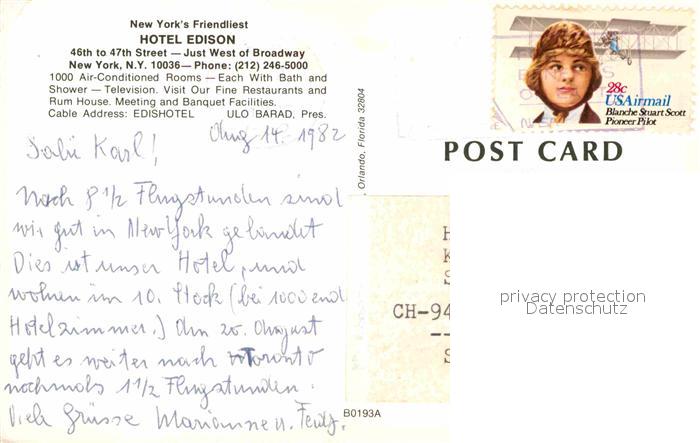 New York's Friendliest
HOTEL EDISON
46th to 47th Street — Just West of Broadway
New York, N.Y. 10036 — Phone: (212) 246-5000
1000 Air-Conditioned Rooms — Each With Bath and
Shower — Television. Visit Our Fine Restaurants and
Rum House. Meeting and Banquet Facilities.
Cable Address: EDISHOTEL ULO BARAD, Pres.
Aug 14. 1982
Salü Karl!
Nach 8 1/2 Flugstunden sind
wir gut in New York gelandet
Dies ist unser Hotel, und
wohnen im 10. Stock (bei 1000 end
Hotelzimmer.) Am 20. August
geht es weiter nach Toronto
nochmals 1 1/2 Flugstunden.
Viele Grüsse Marianne u.
, Orlando, Florida 32804
B0193A
28c
USAirmail
Blanche Stuart Scott
Pioneer Pilot
POST CARD
H
K
S
CH-94
--
S
privacy protection
Datenschutz